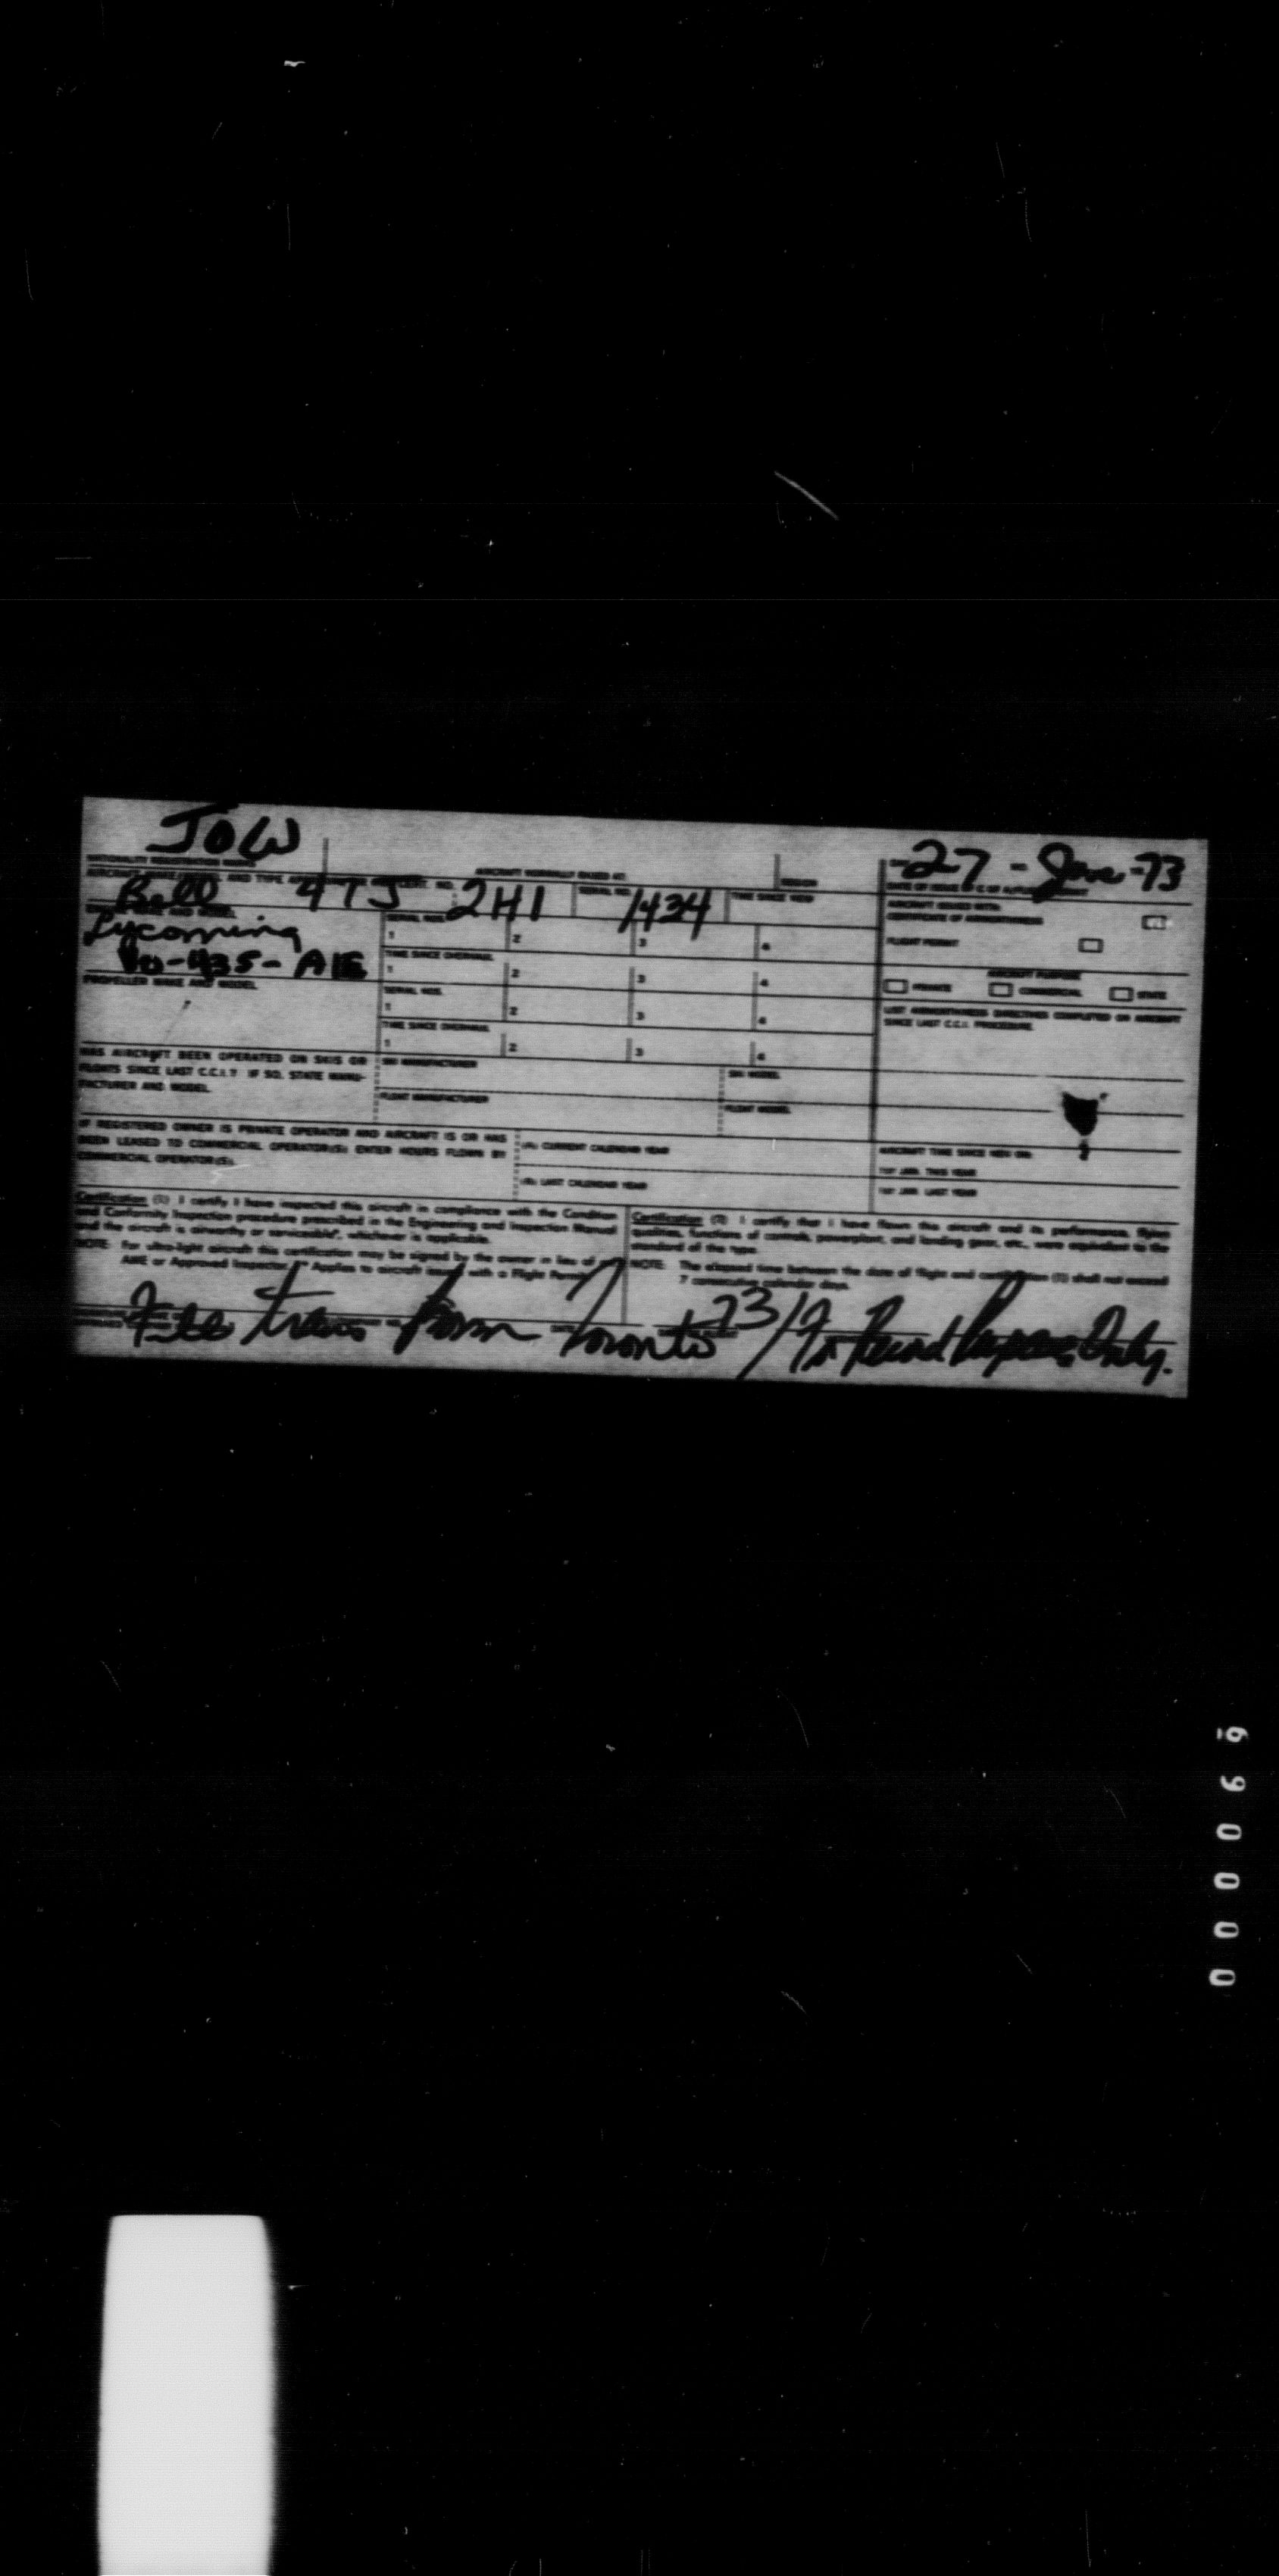 JOW
27 - Jan - 73
NATIONALITY REGISTRATION MARKS
AIRCRAFT NORMALLY BASED AT:
REGION
AIRCRAFT MAKE, MODEL AND TYPE CERT. NO.
SERIAL NO.
TIME SINCE NEW
Bell 47J 2H1 1434
AIRCRAFT ISSUED WITH:
CERTIFICATE OF AIRWORTHINESS
FLIGHT PERMIT
MAKE AND MODEL
SERIAL NOS.
1 2 3 4
Lycoming
VO-435-A1E
TIME SINCE OVERHAUL
1 2 3 4
AIRCRAFT PURPOSE
PRIVATE COMMERCIAL STATE
PROPELLER MAKE AND MODEL
SERIAL NOS.
1 2 3 4
TIME SINCE OVERHAUL
1 2 3 4
LAST AIRWORTHINESS DIRECTIVES COMPLETED ON AIRCRAFT
SINCE LAST C.C.I. PROCEDURE.
HAS AIRCRAFT BEEN OPERATED ON SKIS OR
FLOATS SINCE LAST C.C.I.? IF SO, STATE MANU-
FACTURER AND MODEL.
SKI MANUFACTURER
SKI MODEL
FLOAT MANUFACTURER
FLOAT MODEL
IF REGISTERED OWNER IS PRIVATE OPERATOR AND AIRCRAFT IS OR HAS
BEEN LEASED TO COMMERCIAL OPERATOR(S) ENTER HOURS FLOWN BY
COMMERCIAL OPERATOR(S).
(A) CURRENT CALENDAR YEAR
(B) LAST CALENDAR YEAR
AIRCRAFT TIME SINCE NEW ON:
1ST JAN. THIS YEAR
1ST JAN. LAST YEAR
Certification (1) I certify I have inspected this aircraft in compliance with the Condition
and Conformity Inspection procedure prescribed in the Engineering and Inspection Manual
and the aircraft is airworthy or serviceable*, whichever is applicable.
NOTE: For ultra-light aircraft this certification may be signed by the owner in lieu of
AME or Approved Inspector. * Applies to aircraft with a Flight Permit
Certification (2) I certify that I have flown this aircraft and its performance, flying
qualities, functions of controls, powerplant, and landing gear, etc., were equivalent to the
standard of the type.
NOTE: The elapsed time between the date of flight and certification (1) shall not exceed
7 consecutive calendar days.
File trans from Toronto 73/ For Record Purposes Only.
000069